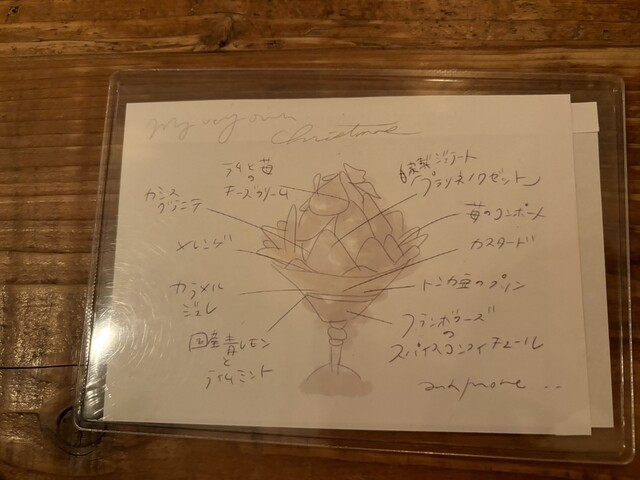 My very own
Christmas
苺の
チーズクリーム
カシス
グラニテ
メレンゲ
カラメル
ジュレ
国産青レモン
と
ライムミント
自家製ジェラート
「プラリネノワゼット」
苺のコンポート
カスタード
トンカ豆のプリン
フランボワーズ
の
スパイスコンフィチュール
and more ...